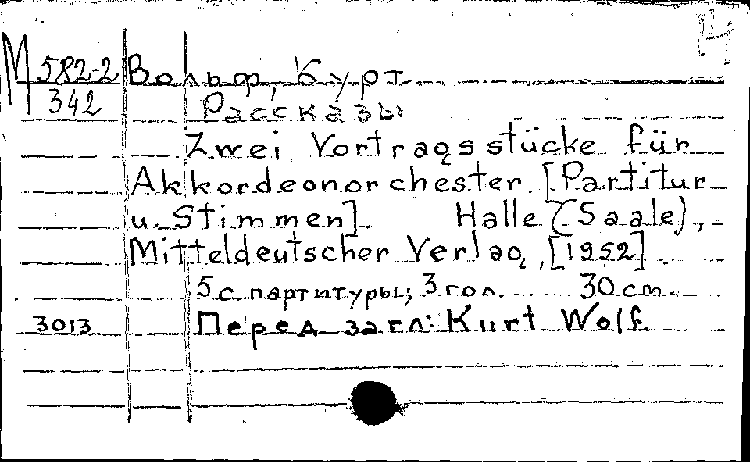 М 582-2 Вольф, Курт
342 Рассказы
Zwei Vortragsstücke für
Akkordeonorchester. [Partitur
u. Stimmen]. Halle (Saale),
Mitteldeutscher Verlag, [1952].
5 с. партитуры; 3 гол. 30 cm.
3013 Перед загл: Kurt Wolf